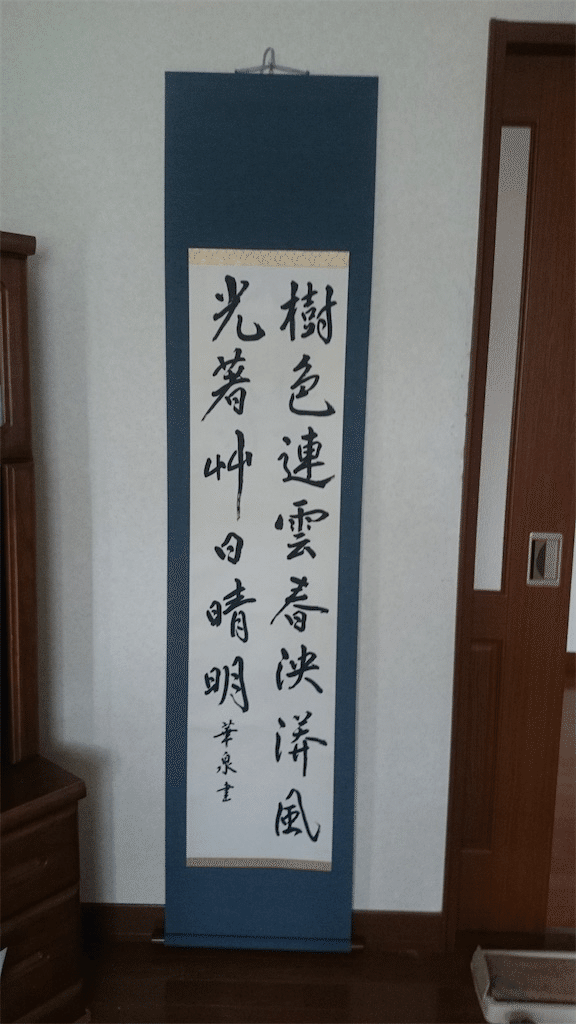 樹色連雲春泱漭風
光著艸日晴明
華泉書